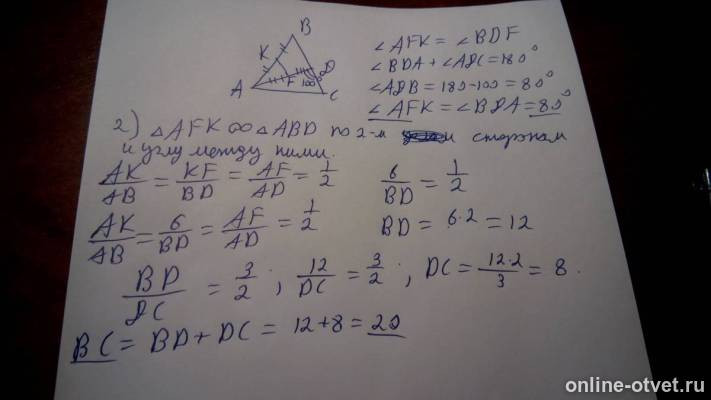 B
K
D
F 100°
A
C
∠AFK = ∠BDF
∠BDA + ∠ADC = 180°
∠ADB = 180-100 = 80°
∠AFK = ∠BDA = 80°
2) △AFK ∞ △ABD по 2-м сторонам
и углу между ними.
AK/AB = KF/BD = AF/AD = 1/2
6/BD = 1/2
AK/AB = 6/BD = AF/AD = 1/2
BD = 6·2 = 12
BD/DC = 3/2 ; 12/DC = 3/2 ; DC = 12·2/3 = 8.
BC = BD + DC = 12+8 = 20
online-otvet.ru